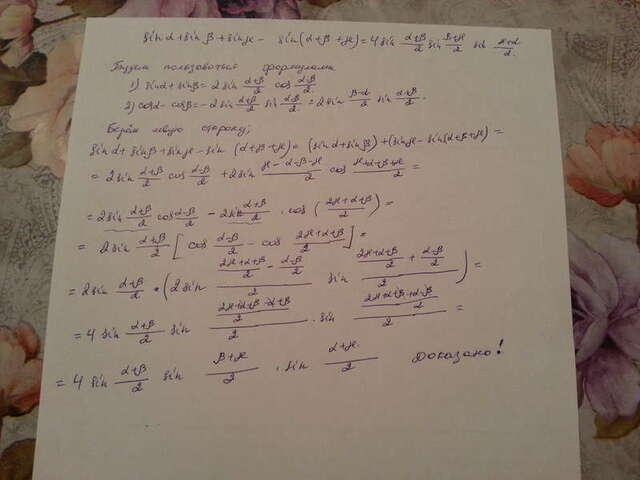 sin α + sin β + sin γ - sin (α + β + γ) = 4 sin (α+β)/2 sin (β+γ)/2 sin (γ+α)/2.
Будем пользоваться формулами
1) sin α + sin β = 2 sin (α+β)/2 cos (α-β)/2
2) cos α - cos β = -2 sin (α+β)/2 sin (α-β)/2 = 2 sin (β-α)/2 sin (α+β)/2.
Берём левую сторону;
sin α + sin β + sin γ - sin (α + β + γ) = (sin α + sin β) + (sin γ - sin (α + β + γ) =
= 2 sin (α+β)/2 cos (α-β)/2 + 2 sin (γ-α-β-γ)/2 cos (γ+α+β+γ)/2 =
= 2 sin (α+β)/2 cos (α-β)/2 - 2 sin (α+β)/2 · cos ((2γ+α+β)/2) =
= 2 sin (α+β)/2 [cos (α-β)/2 - cos (2γ+α+β)/2] =
= 2 sin (α+β)/2 • (2 sin ((2γ+α+β)/2 - (α-β)/2)/2 sin ((2γ+α+β)/2 + (α-β)/2)/2) =
= 4 sin (α+β)/2 sin ((2γ+α+β-α+β)/2)/2 · sin ((2γ+α+β+α-β)/2)/2 =
= 4 sin (α+β)/2 sin (β+γ)/2 · sin (α+γ)/2 Доказано!